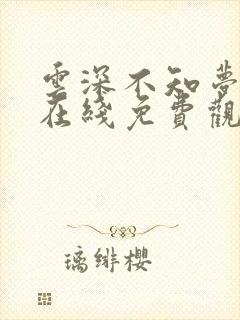 雲深不知夢
在綫免費觀
璃緋櫻